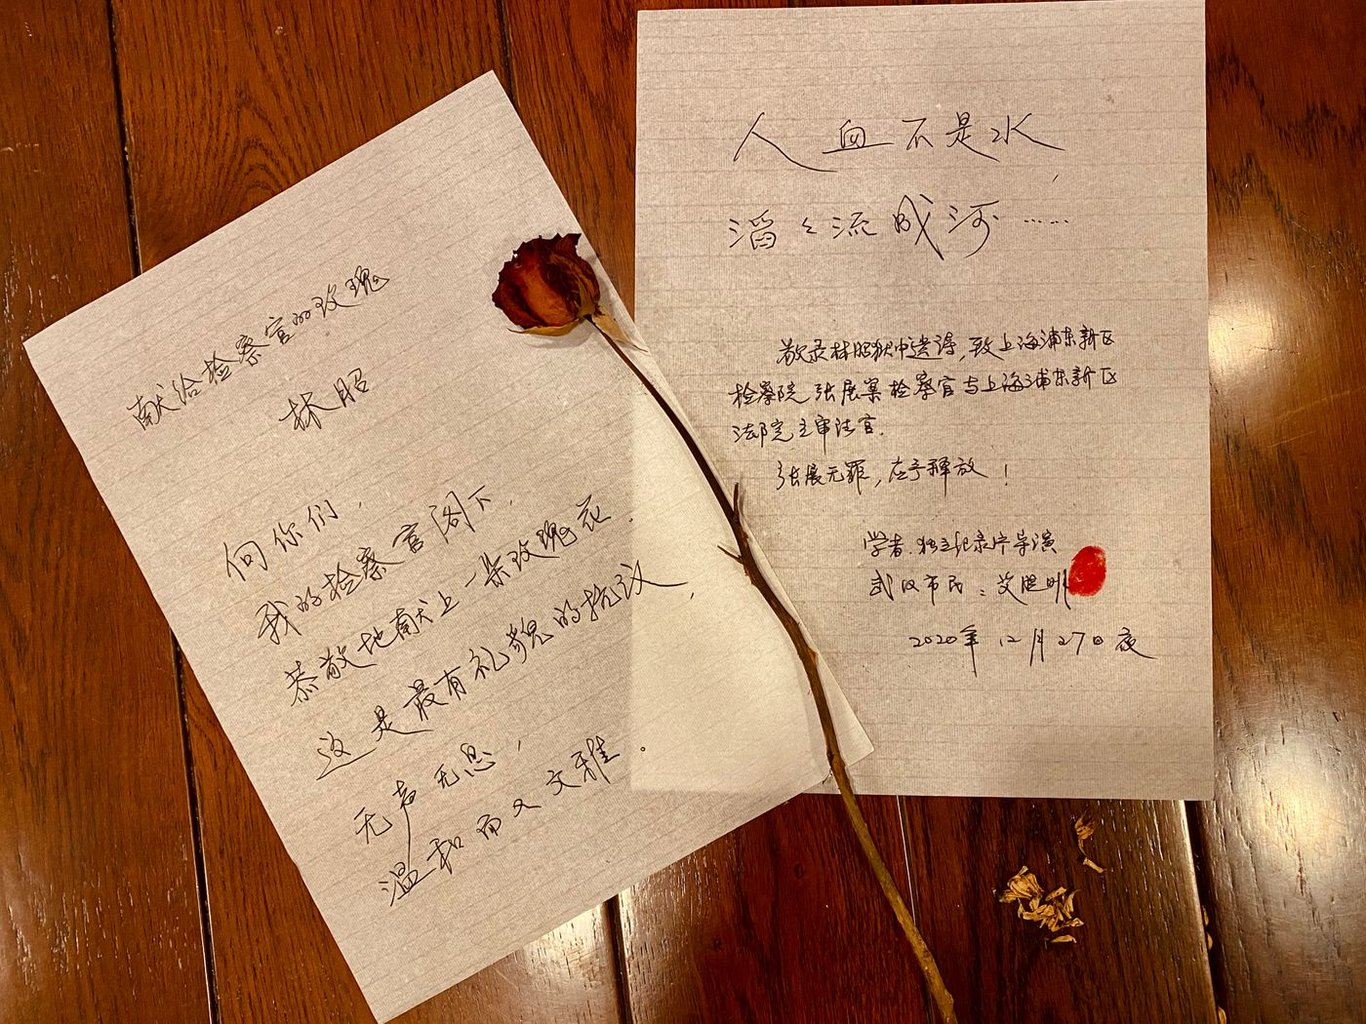 献给检察官的玫瑰
林昭
向你们，
我的检察官阁下，
恭敬地献上一朵玫瑰花．
这是最有礼貌的抗议，
无声无息，
温和而又文雅．
人血不是水，
滔々流成河……
敬录林昭狱中遗诗，致上海浦东新区
检察院张展案检察官与上海浦东新区
法院主审法官．
张展无罪，应予释放！
学者．独立纪录片导演
武汉市民：艾晓明
2020年12月27日夜